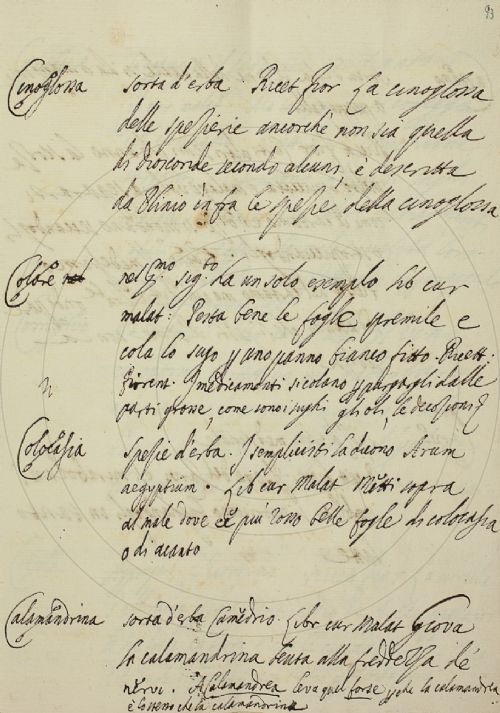 93
Cinoglossa sorta d'erba. Ricet fior La cinoglossa
delle spezierie ancorchè non sia quella
di dioscoride secondo alcuni, è descritta
da Plinio infra le spezie della cinoglossa
Colare nel pmo sigto da un solo esemplo lib cur
malat: Pesta bene le foglie premile e
cola lo sugo p uno panno bianco fitto. Ricett.
fiorent. I medicamenti si colano p purgargli dalle
parti grosse, come sono i sughi gli oli, le decozioni
Colocasia spezie d'erba. I semplicisti la dicono Arum
aegyptium. Lib cur Malat Metti sopra
al male dove è più rosso delle foglie di colocasia
o di acanto
Calamandrina sorta d'erba Camedrio. Libr cur Malat Giova
la calamandrina beuta alla freddezza de
nervi. A Calamandrea leva quel forse la calamandrea
è lo stesso che la calamandrina